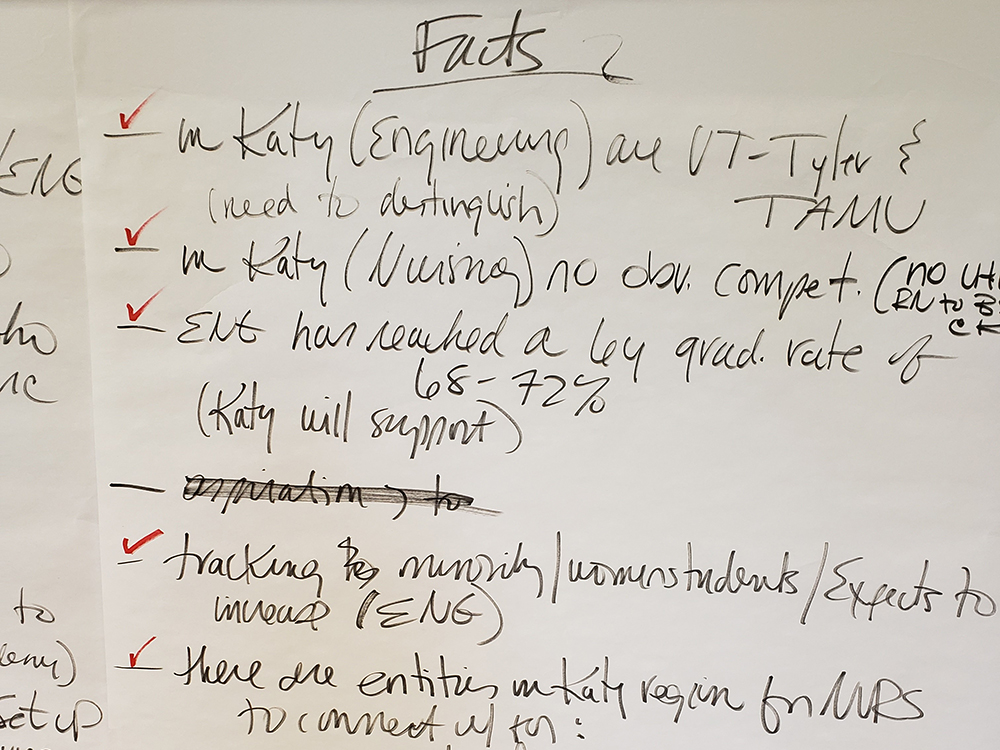 Facts 2
in Katy (Engineering) are UT-Tyler &
(need to destinguish) TAMU
in Katy (Nursing) no obv. compet. (no UH
RN to BS
CK
ENG has reached a 6y grad. rate of
68-72%
(Katy will support)
tracking minority/women students/Expects to
increase (ENG)
there are entities in Katy region for NURS
to connect w/ for:
/ENG
to
set up